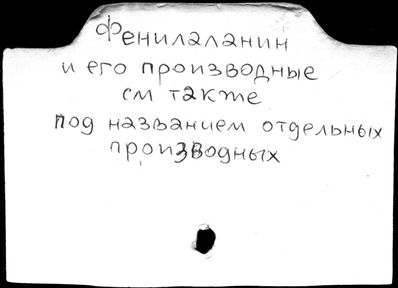 Фенилаланин
и его производные
см также
под названием отдельных
производных